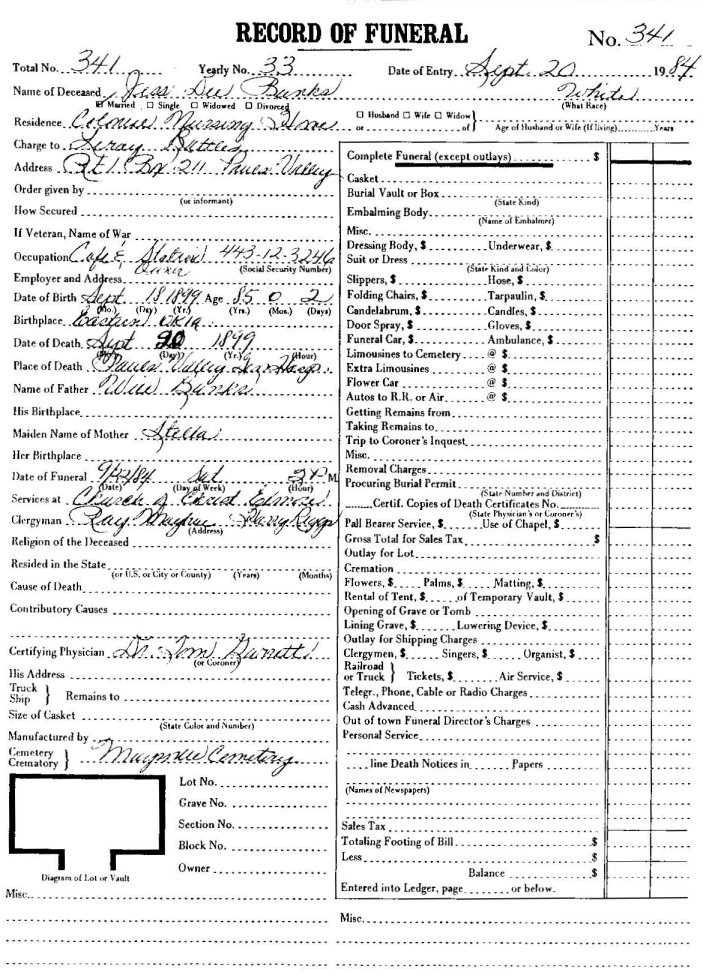 RECORD OF FUNERAL No. 341
Total No. 341 Yearly No. 33 Date of Entry Sept. 20 1984
Name of Deceased Jess Dee Banks White
☒ Married ☐ Single ☐ Widowed ☐ Divorced (What Race)
Residence Colonial Nursing Home
☐ Husband ☐ Wife ☐ Widow } or of Age of Husband or Wife (If living) Years
Charge to Leroy
Address Rt 1 Bx 211 Pauls Valley
Order given by
(or informant)
How Secured
If Veteran, Name of War
Occupation Cafe & Station Owner 443-12-3246
(Social Security Number)
Employer and Address
Date of Birth Sept 18 1899 Age 85 0 2
(Mo.) (Day) (Yr.) (Yrs.) (Mos.) (Days)
Birthplace Eastern Okla
Date of Death Sept 20 1899
(Mo.) (Day) (Yr.) (Hour)
Place of Death Pauls Valley
Name of Father Will Banks
His Birthplace
Maiden Name of Mother Stella
Her Birthplace
Date of Funeral 9/22/84 Sat 2 M
(Date) (Day of Week) (Hour)
Services at Church of Christ
Clergyman Ray Larry
(Address)
Religion of the Deceased
Resided in the State
(or U.S. or City or County) (Years) (Months)
Cause of Death
Contributory Causes
Certifying Physician Dr. Tom
(or Coroner)
His Address
Truck Ship } Remains to
Size of Casket
(State Color and Number)
Manufactured by
Cemetery Crematory } Maysville Cemetery
Lot No.
Grave No.
Section No.
Block No.
Owner
Diagram of Lot or Vault
Misc.
Complete Funeral (except outlays) $
Casket
Burial Vault or Box
(State Kind)
Embalming Body
(Name of Embalmer)
Misc.
Dressing Body, $ Underwear, $
Suit or Dress
(State Kind and Color)
Slippers, $ Hose, $
Folding Chairs, $ Tarpaulin, $
Candelabrum, $ Candles, $
Door Spray, $ Gloves, $
Funeral Car, $ Ambulance, $
Limousines to Cemetery @ $
Extra Limousines @ $
Flower Car @ $
Autos to R.R. or Air @ $
Getting Remains from
Taking Remains to
Trip to Coroner's Inquest
Misc.
Removal Charges
Procuring Burial Permit
(State Number and District)
Certif. Copies of Death Certificates No.
(State Physician's or Coroner's)
Pall Bearer Service, $ Use of Chapel, $
Gross Total for Sales Tax $
Outlay for Lot
Cremation
Flowers, $ Palms, $ Matting, $
Rental of Tent, $ of Temporary Vault, $
Opening of Grave or Tomb
Lining Grave, $ Lowering Device, $
Outlay for Shipping Charges
Clergymen, $ Singers, $ Organist, $
Railroad or Truck } Tickets, $ Air Service, $
Telegr., Phone, Cable or Radio Charges
Cash Advanced
Out of town Funeral Director's Charges
Personal Service
line Death Notices in Papers
(Names of Newspapers)
Sales Tax
Totaling Footing of Bill $
Less $
Balance $
Entered into Ledger, page or below.
Misc.